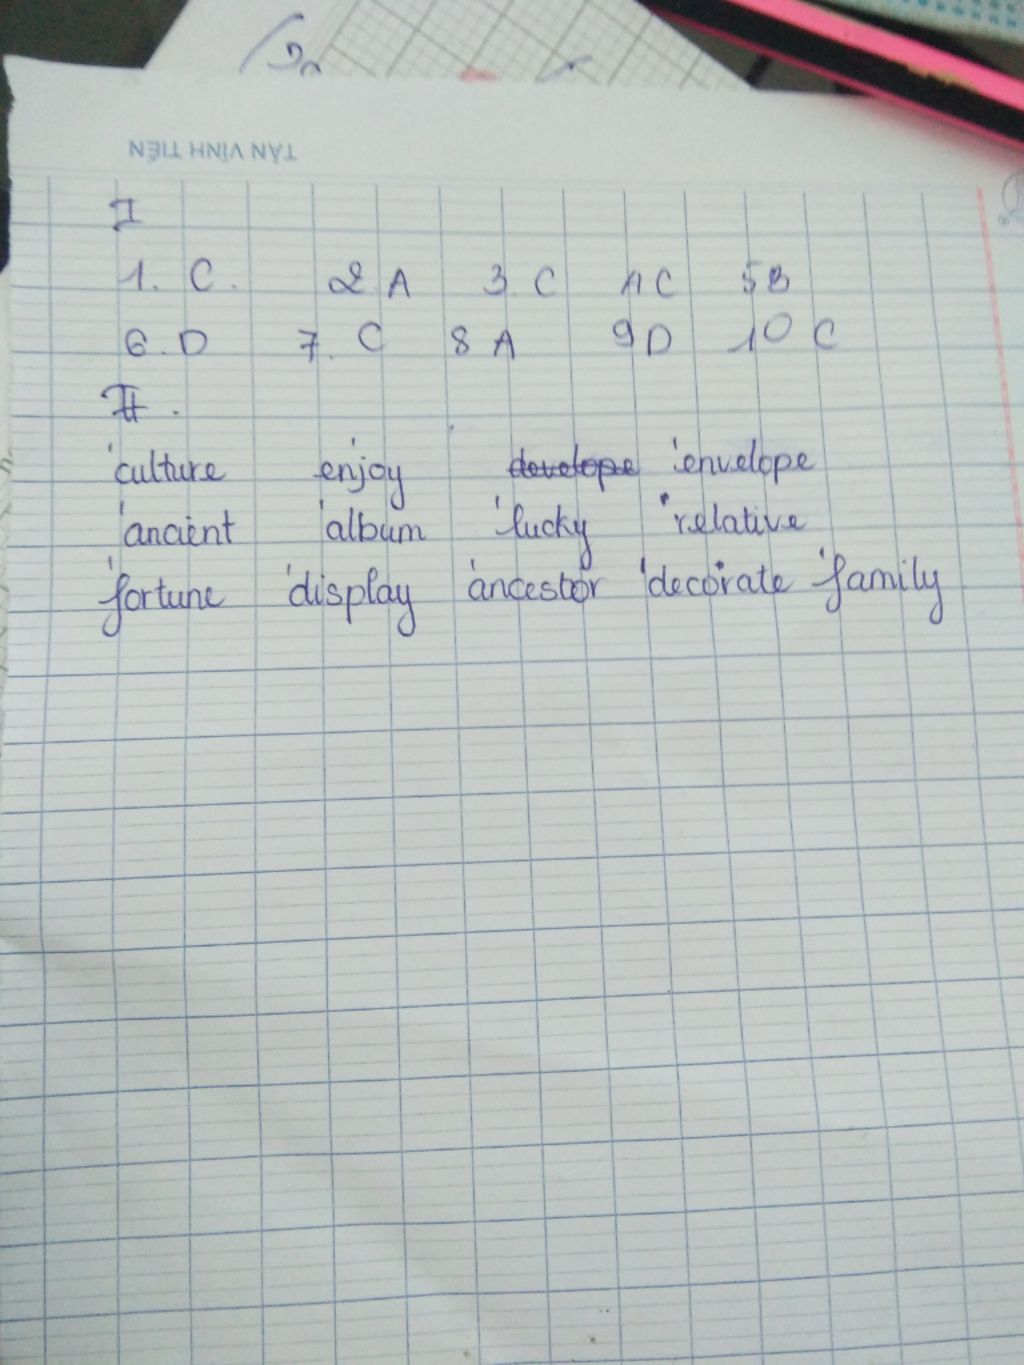 TÂN VĨNH TIẾN
I
1. C. 2 A 3. C 4 C 5 B
6. D 7. C 8 A 9 D 10 C
II.
'culture en'joy develope 'envelope
'ancient 'album 'lucky 'relative
'fortune 'display 'ancestor 'decorate 'family